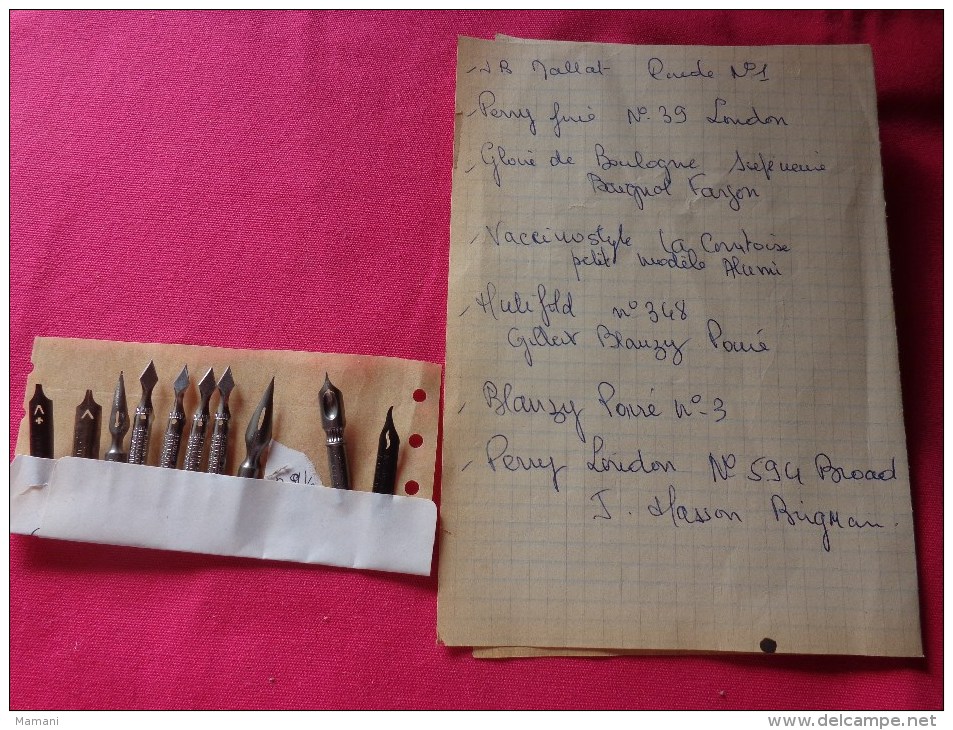 J B Mallat Ronde N°1
Perry N° 39 London
Gloire de Boulogne
Baignol Farjon
Vaccinostyle La Comtoise
petit modèle Alumi
n° 348
Gilbert Blanzy Pouré
Blanzy Pouré n° 3
Perry London N° 594 Broad
J. Masson
Mamani
www.delcampe.net